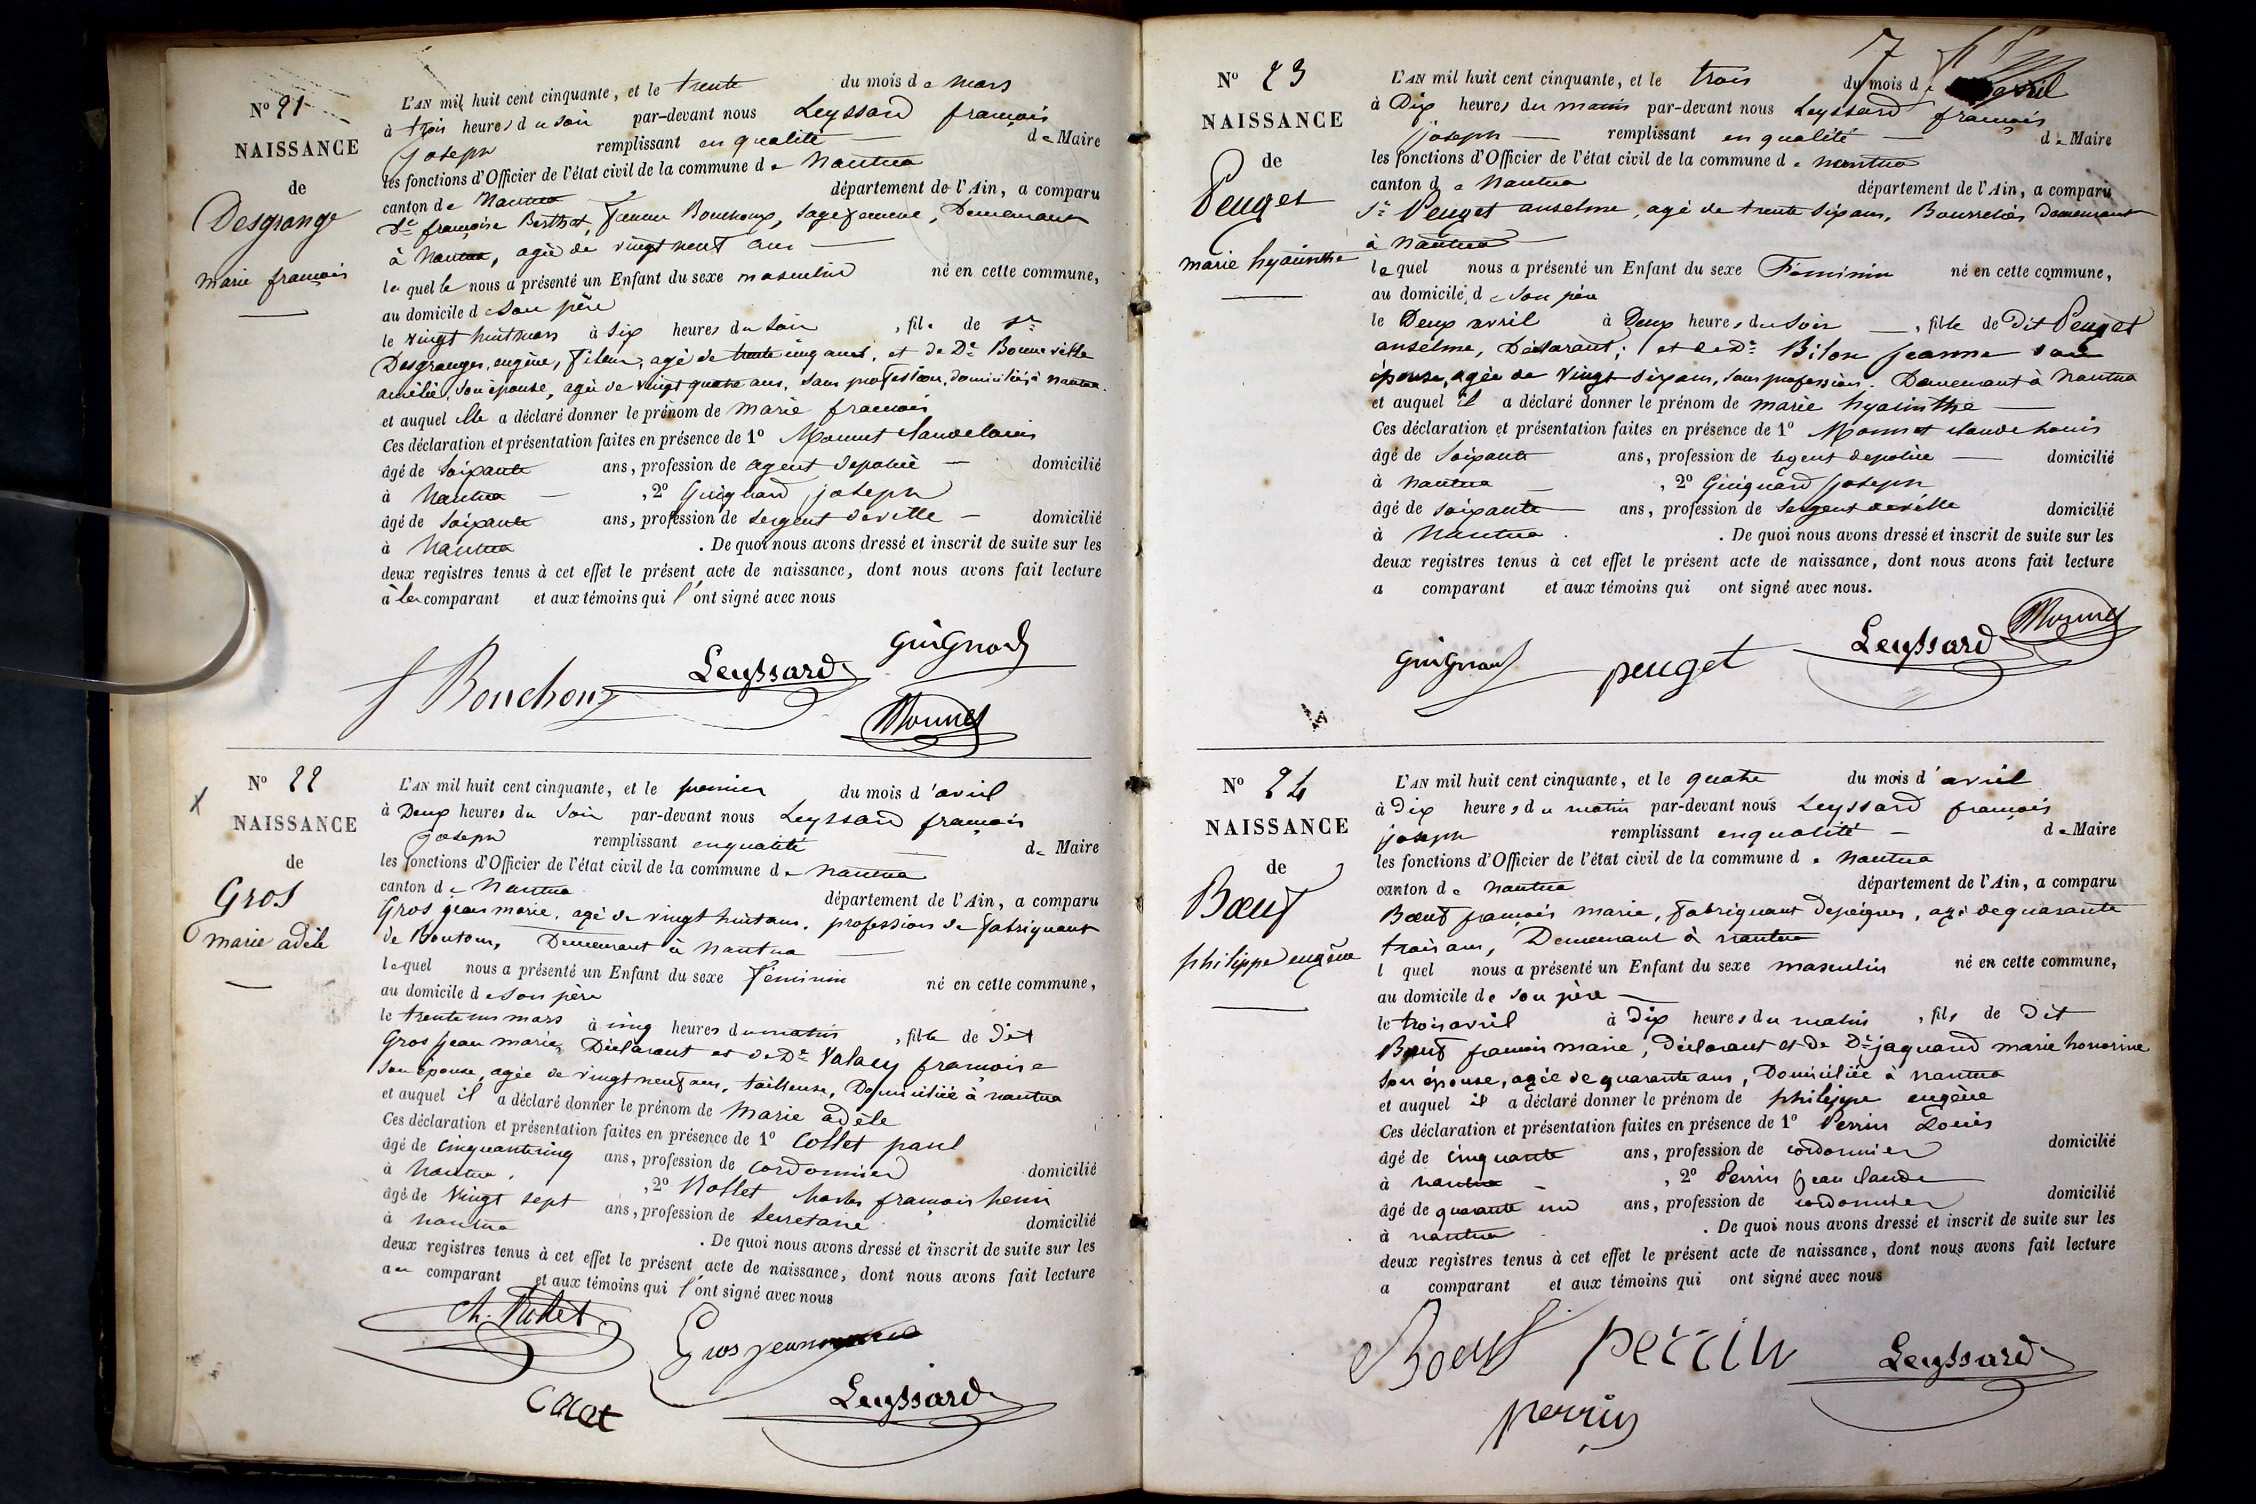 N° 21
NAISSANCE
de
Desgrange
marie françois
L'AN mil huit cent cinquante, et le trente du mois de mars
à trois heures du soir par-devant nous Leyssard françois
joseph remplissant en qualité de Maire
les fonctions d'Officier de l'état civil de la commune de Nantua
canton de Nantua département de l'Ain, a comparu
De françoise Berthet, femme Bouchoux, sagefemme, Demeurant
à Nantua, agée de vingt neuf ans
laquelle nous a présenté un Enfant du sexe masculin né en cette commune,
au domicile de son père
le vingt huit mars à six heures du soir, fils de Sr
Desgranges, eugène, fileur, agé de trente cinq ans, et de De Bonneville
amélie, son épouse, agée de vingt quatre ans, sans profession, domiciliés à nantua.
et auquel elle a déclaré donner le prénom de marie françois
Ces déclaration et présentation faites en présence de 1° Monnet Claude Louis
âgé de soixante ans, profession de agent de police domicilié
à Nantua, 2° Guignard joseph
âgé de soixante ans, profession de sergent de ville domicilié
à Nantua. De quoi nous avons dressé et inscrit de suite sur les
deux registres tenus à cet effet le présent acte de naissance, dont nous avons fait lecture
à la comparant et aux témoins qui l'ont signé avec nous
f Bouchoux Leyssard Guignard
Monnet
N° 22
NAISSANCE
de
Gros
marie adèle
L'AN mil huit cent cinquante, et le premier du mois d'avril
à Deux heures du soir par-devant nous Leyssard françois
joseph remplissant en qualité de Maire
les fonctions d'Officier de l'état civil de la commune de nantua
canton de Nantua département de l'Ain, a comparu
Gros jean marie, agé de vingt huit ans, profession de fabriquant
de Boutons, Demeurant à Nantua
lequel nous a présenté un Enfant du sexe féminin né en cette commune,
au domicile de son père
le trente un mars à cinq heures du matin, fille de dit
Gros jean marie, Déclarant et de De Valacy françoise
son épouse, agée de vingt neuf ans, tailleuse, Domiciliée à nantua
et auquel il a déclaré donner le prénom de Marie adèle
Ces déclaration et présentation faites en présence de 1° Collet paul
âgé de cinquante cinq ans, profession de cordonnier domicilié
à Nantua, 2° Rollet charles françois henri
âgé de vingt sept ans, profession de secretaire domicilié
à nantua. De quoi nous avons dressé et inscrit de suite sur les
deux registres tenus à cet effet le présent acte de naissance, dont nous avons fait lecture
au comparant et aux témoins qui l'ont signé avec nous
Ch. Rollet Gros jean marie
Colet Leyssard
7
N° 23
NAISSANCE
de
Peuget
marie hyacinthe
L'AN mil huit cent cinquante, et le trois du mois d avril
à Dix heures du matin par-devant nous Leyssard françois
joseph remplissant en qualité de Maire
les fonctions d'Officier de l'état civil de la commune de nantua
canton de Nantua département de l'Ain, a comparu
Sr Peuget anselme, agé de trente six ans, Bourrelier Demeurant
à Nantua
lequel nous a présenté un Enfant du sexe Féminin né en cette commune,
au domicile de son père
le Deux avril à Deux heures du soir, fille de dit Peuget
anselme, Déclarant; et de De Bilon jeanne son
épouse, agée de vingt six ans, sans profession. Demeurant à Nantua
et auquel il a déclaré donner le prénom de marie hyacinthe
Ces déclaration et présentation faites en présence de 1° Monnet claude Louis
âgé de soixante ans, profession de agent de police domicilié
à nantua, 2° Guignard joseph
âgé de soixante ans, profession de sergent de ville domicilié
à Nantua. De quoi nous avons dressé et inscrit de suite sur les
deux registres tenus à cet effet le présent acte de naissance, dont nous avons fait lecture
a comparant et aux témoins qui ont signé avec nous.
Guignard peuget Leyssard Monnet
N° 24
NAISSANCE
de
Bœuf
philippe eugène
L'AN mil huit cent cinquante, et le quatre du mois d'avril
à dix heures du matin par-devant nous Leyssard françois
joseph remplissant en qualité de Maire
les fonctions d'Officier de l'état civil de la commune de Nantua
canton de nantua département de l'Ain, a comparu
Bœuf françois marie, fabriquant de peignes, agé de quarante
trois ans, Demeurant à nantua
l quel nous a présenté un Enfant du sexe masculin né en cette commune,
au domicile de son père
le trois avril à dix heures du matin, fils de dit
Bœuf françois marie, déclarant et de De jaquand marie honorine
son épouse, agée de quarante ans, Domiciliée à nantua
et auquel il a déclaré donner le prénom de philippe eugène
Ces déclaration et présentation faites en présence de 1° Perrin Louis
âgé de cinquante ans, profession de cordonnier domicilié
à nantua, 2° Perrin jean claude
âgé de quarante un ans, profession de cordonnier domicilié
à nantua. De quoi nous avons dressé et inscrit de suite sur les
deux registres tenus à cet effet le présent acte de naissance, dont nous avons fait lecture
a comparant et aux témoins qui ont signé avec nous
Boeuf perrin Leyssard
perrin